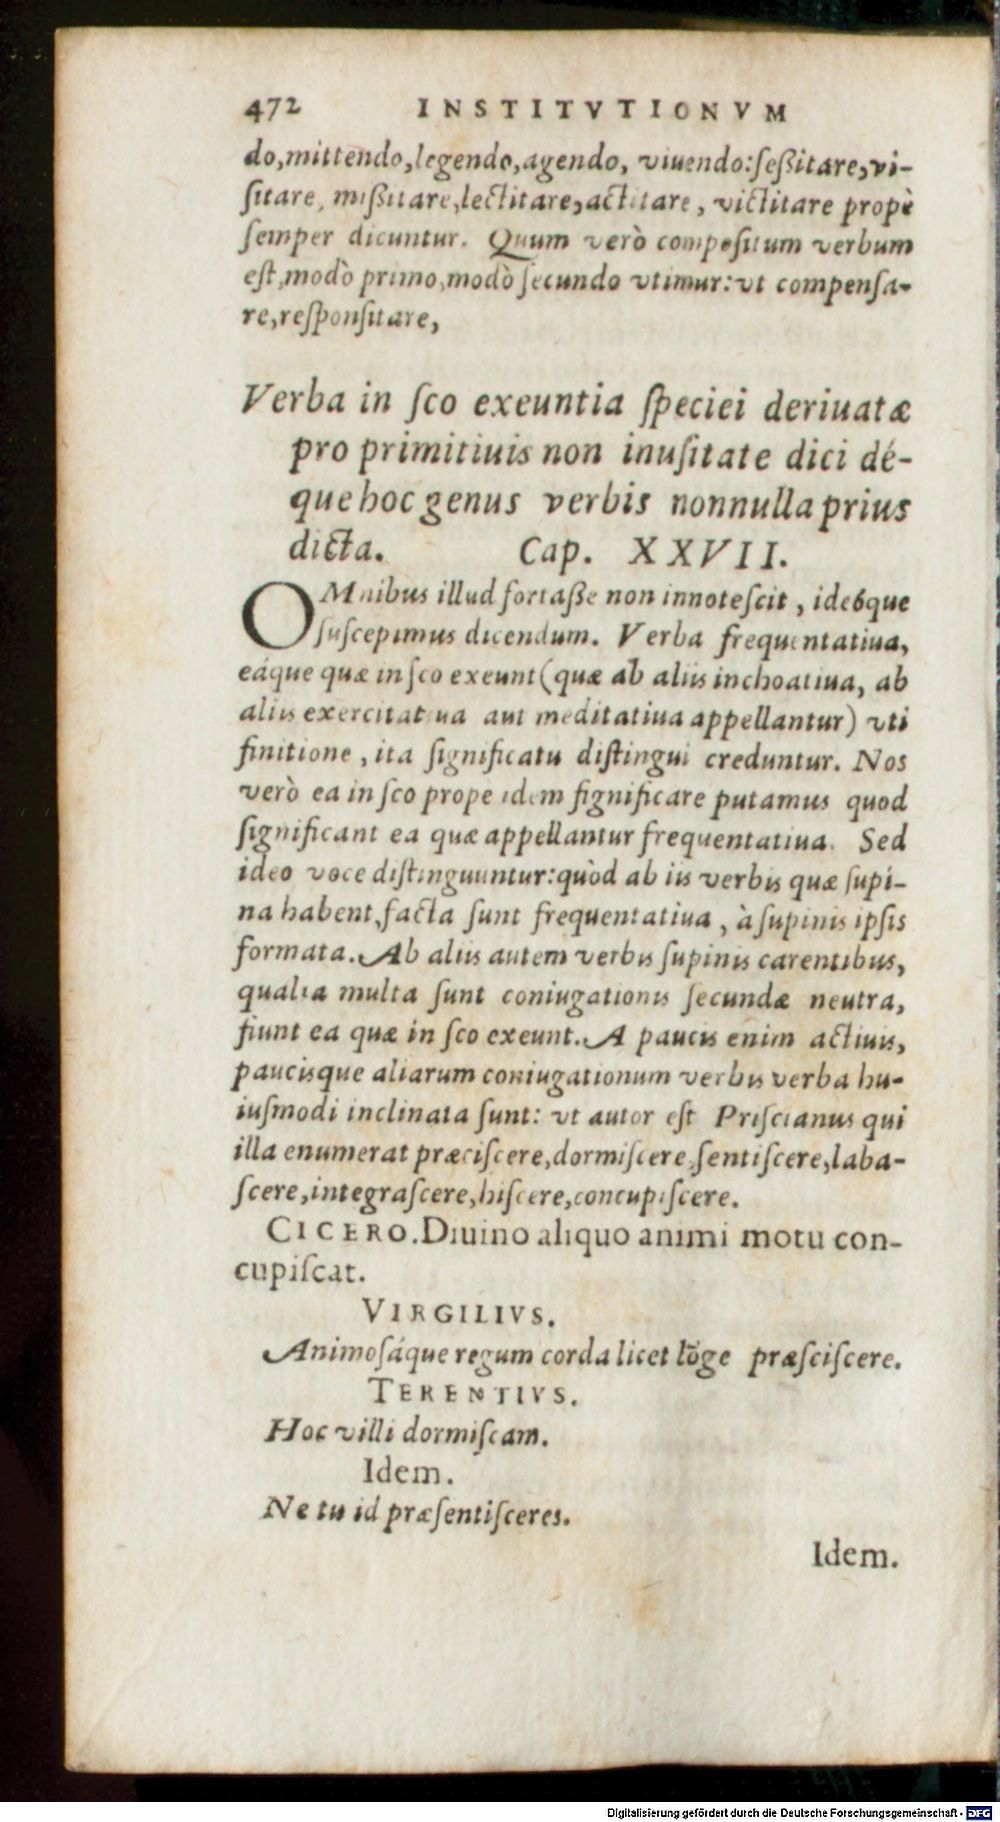 472 INSTITVTIONVM
do,mittendo,legendo,agendo, viuendo:ſeßitare,vi-
ſitare, mißitare,lectitare,actitare, victitare propè
ſemper dicuntur. Quum verò compoſitum verbum
eſt,modò primo,modò ſecundo vtimur:vt compenſa-
re,reſponſitare,
Verba in ſco exeuntia ſpeciei deriuatæ
pro primitiuis non inuſitate dici dé-
que hoc genus verbis nonnulla prius
dicta. Cap. XXVII.
OMnibus illud fortaße non innoteſcit, ideóque
ſuſcepimus dicendum. Verba frequentatiua,
eáque quæ in ſco exeunt(quæ ab aliis inchoatiua, ab
aliis exercitatiua aut meditatiua appellantur) vti
finitione, ita ſignificatu diſtingui creduntur. Nos
verò ea in ſco prope idem ſignificare putamus quod
ſignificant ea quæ appellantur frequentatiua. Sed
ideo voce diſtinguuntur:quòd ab iis verbis quæ ſupi-
na habent,facta ſunt frequentatiua, à ſupinis ipſis
formata. Ab aliis autem verbis ſupinis carentibus,
qualia multa ſunt coniugationis ſecundæ neutra,
fiunt ea quæ in ſco exeunt. A paucis enim actiuis,
pauciſque aliarum coniugationum verbis verba hu-
iuſmodi inclinata ſunt: vt autor eſt Priſcianus qui
illa enumerat præciſcere,dormiſcere,ſentiſcere,laba-
ſcere,integraſcere,hiſcere,concupiſcere.
CICERO. Diuino aliquo animi motu con-
cupiſcat.
VIRGILIVS.
Animoſáque regum corda licet lõge præſciſcere.
TERENTIVS.
Hoc villi dormiſcam.
Idem.
Ne tu id præſentiſceres.
Idem.
Digitalisierung gefördert durch die Deutsche Forschungsgemeinschaft - DFG